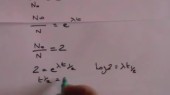 N₀/N = e^λt
N₀/N = 2
2 = e^λt½ log 2 = λt½
t½ =